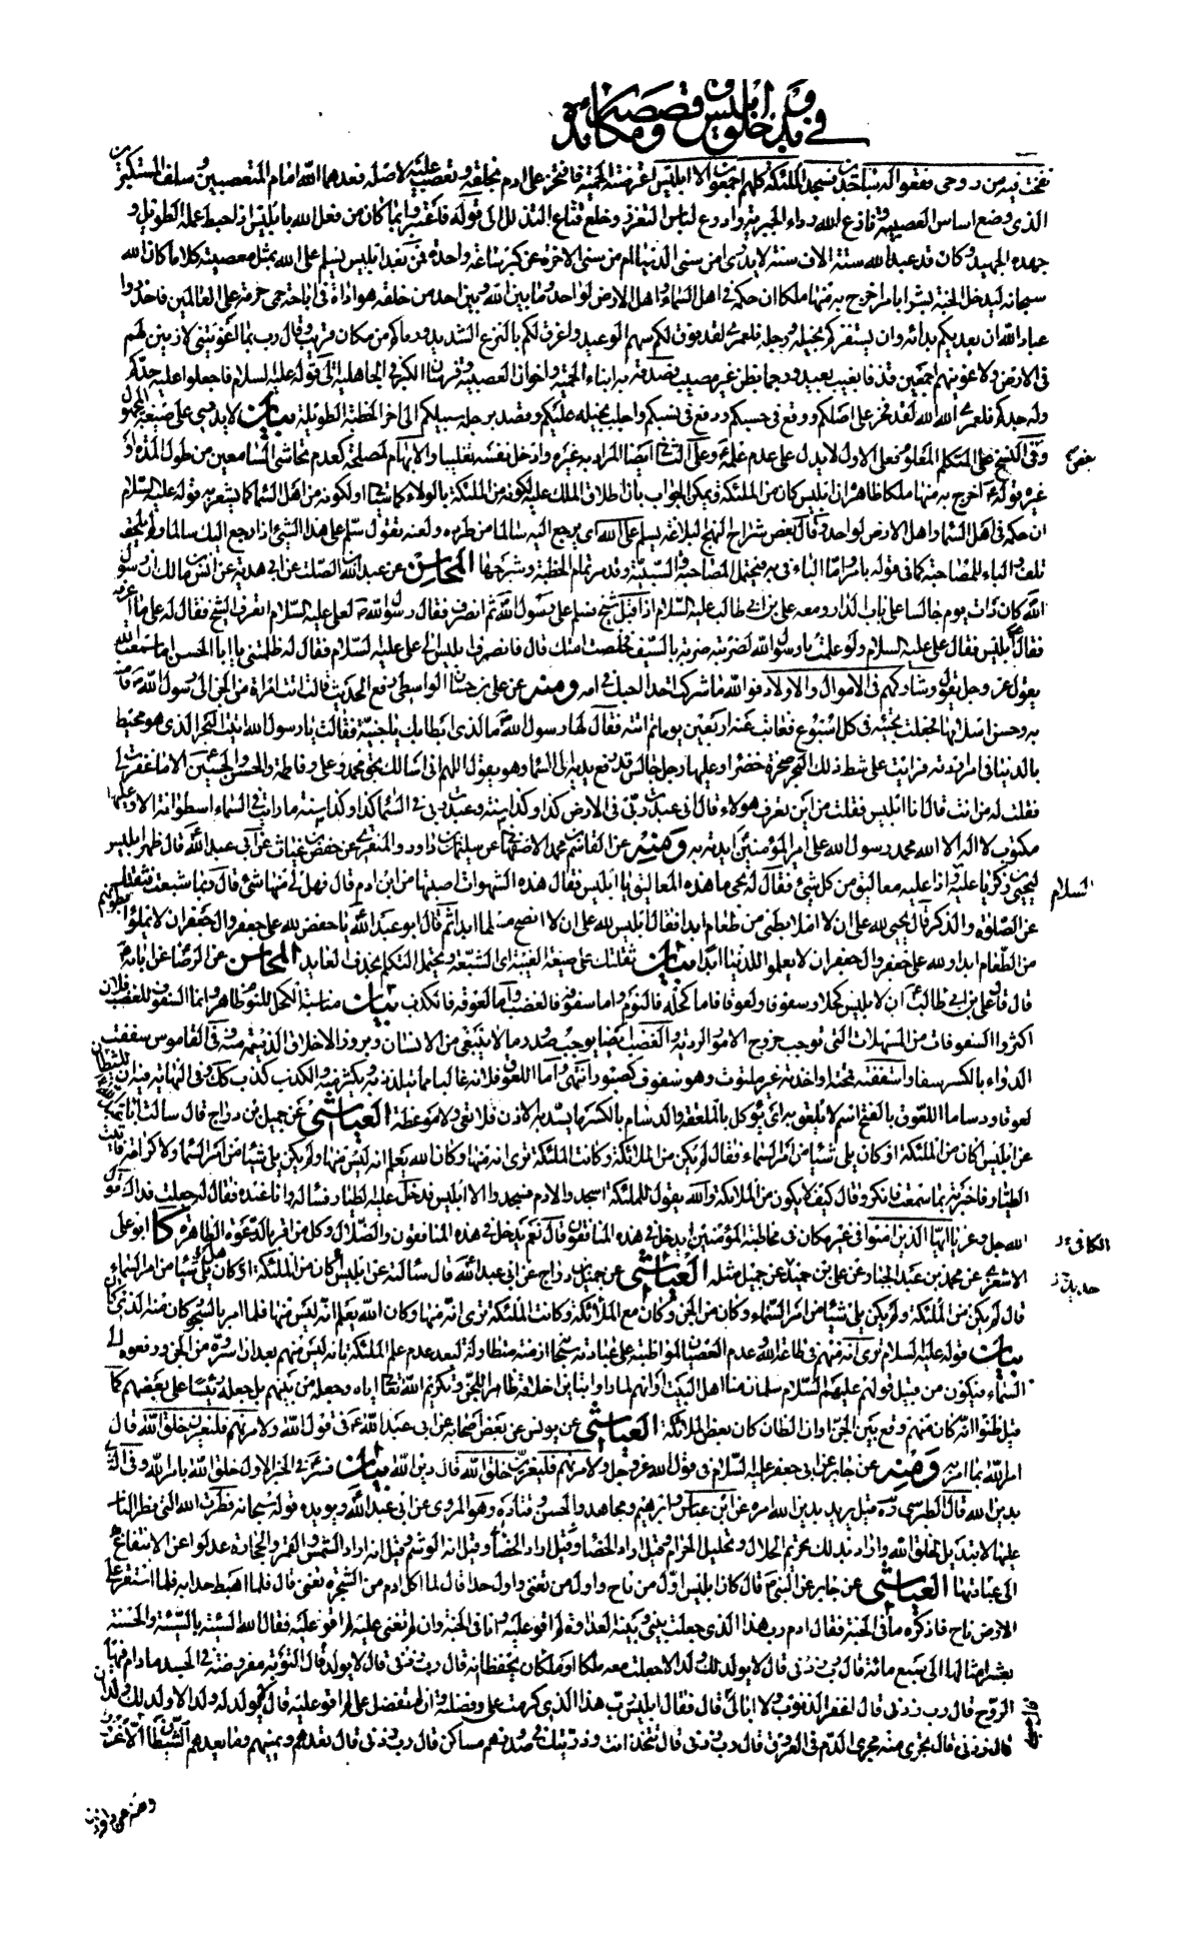 في بدء خلق ابليس وقصصه ومكائده
نفخت فيه من روحي فقعوا له ساجدين فسجد الملئكة كلهم اجمعون الا ابليس اعترضته الحمية فافتخر على ادم بخلقه وتعصب عليه لاصله فعدو الله امام المتعصبين وسلف المستكبرين
الذي وضع اساس العصبية ونازع الله رداء الجبرية وادرع لباس التعزز وخلع قناع التذلل الى قوله فاعتبروا بما كان من فعل الله بابليس اذ احبط عمله الطويل و
جهده الجهيد وكان قد عبد الله ستة الاف سنة لا يدرى امن سني الدنيا ام من سني الاخرة عن كبر ساعة واحدة فمن بعد ابليس يسلم على الله بمثل معصيته كلا ما كان الله
سبحانه ليدخل الجنة بشرا بامر اخرج به منها ملكا ان حكمه في اهل السماء واهل الارض لواحد وما بين الله وبين احد من خلقه هوادة في اباحة حمى حرمه على العالمين فاحذروا
عباد الله ان يعديكم بدائه وان يستفزكم بخيله ورجله فلعمري لقد فوق لكم سهم الوعيد واغرق لكم بالنزع الشديد ورماكم من مكان قريب وقال رب بما اغويتني لازينن لهم
في الارض ولاغوينهم اجمعين قذفا بغيب بعيد ورجما بظن غير مصيب صدقه به ابناء الحمية واخوان العصبية وفرسان الكبر والجاهلية الى قوله عليه السلام فاجعلوا عليه حدكم
وله جدكم فلعمر الله لقد فخر على اصلكم ووقع في حسبكم ودفع في نسبكم واجلب بخيله عليكم وقصد برجله سبيلكم الى اخر الخطبة الطويلة بيان لا يدرى على صيغة المجهول
وفي بعض النسخ على المتكلم المعلوم فعلى الاول لا يدل على عدم علمه ع وعلى الثاني ايضا المراد به غيره وادخل نفسه تغليبا والابهام لمصلحة كعدم تحاشي السامعين من طول المدة او
غيره قوله ع اخرج به منها ملكا ظاهره ان ابليس كان من الملئكة ويمكن الجواب بان اطلاق الملك عليه لكونه من الملئكة بالولاء كما سياتي او لكونه من اهل السماء كما يشعر به قوله عليه السلام
ان حكمه في اهل السماء واهل الارض لواحد وقال بعض شراح نهج البلاغة يسلم على الله اى يرجع اليه سالما من طرده ولعنه تقول سلم على هذا الشئ اذا رجع اليك سالما ولم يلحقه
تلف والباء للمصاحبة كما في قوله بامر واما الباء في به فيحتمل المصاحبة والسببية وقد مر تمام الخطبة وشرحها المحاسن عن عبد الله بن الصلت عن ابي هدبة عن انس بن مالك ان رسول
الله ص كان ذات يوم جالسا على باب الدار ومعه علي بن ابي طالب عليه السلام اذ اقبل شيخ فسلم على رسول الله ثم انصرف فقال رسول الله ص لعلي عليه السلام اتعرف الشيخ فقال له علي ما اعرفه
فقال ص هذا ابليس فقال علي عليه السلام لو علمت يا رسول الله لضربته ضربة بالسيف فخلصت امتك قال فانصرف ابليس الى علي عليه السلام فقال له ظلمتني يا ابا الحسن اما سمعت الله
يقول عز وجل وشاركهم في الاموال والاولاد فوالله ما شركت احدا احبك في امه ومنه عن علي بن حسان الواسطي رفع الحديث قال اتت امراة من الجن الى رسول الله ص فامنت
به وحسن اسلامها فجعلت تجيئه في كل اسبوع فغابت عنه اربعين يوما ثم اتته فقال لها رسول الله ص ما الذي ابطا بك يا جنية فقالت يا رسول الله اتيت البحر الذي هو محيط
بالدنيا في امر اردته فرايت على شط ذلك البحر صخرة خضراء وعليها رجل جالس قد رفع يديه الى السماء وهو يقول اللهم اني اسالك بحق محمد وعلي وفاطمة والحسن والحسين الا ما غفرت لي
فقلت له من انت قال انا ابليس فقلت من اين تعرف هؤلاء قال اني عبدت ربي في الارض كذا وكذا سنة وعبدت ربي في السماء كذا وكذا سنة ما رايت في السماء اسطوانة الا وعليها
مكتوب لا اله الا الله محمد رسول الله علي امير المؤمنين ايدته به ومنه عن القاسم بن محمد الاصفهاني عن سليمان بن داود المنقري عن حفص بن غياث عن ابي عبد الله ع قال ظهر ابليس
ليحيى بن زكريا عليه السلام واذا عليه معاليق من كل شئ فقال له يحيى ما هذه المعاليق يا ابليس فقال هذه الشهوات اصبتها من ابن ادم قال فهل لي منها شئ قال ربما شبعت فثقلتك
عن الصلوة والذكر قال يحيى لله علي ان لا املا بطني من طعام ابدا فقال ابليس لله علي ان لا انصح مسلما ابدا ثم قال ابو عبد الله يا حفص لله على جعفر وال جعفر ان لا يملؤا بطونهم
من الطعام ابدا ولله على جعفر وال جعفر ان لا يعملوا للدنيا ابدا بيان ثقلتك على صيغة الغيبة اى الشبعة ويحتمل التكلم بحذف العائد المحاسن عن الرضا عن ابائه ع
قال قال علي بن ابي طالب ع ان لابليس كحلا وسفوفا ولعوقا فاما كحله فالنوم واما سفوفه فالغضب واما لعوقه فالكذب بيان مناسبة الكحل للنوم ظاهر واما السفوف للغضب فلان
اكثر السفوفات من المسهلات التي توجب خروج الامور الردية والغضب ايضا يوجب صدور ما لا ينبغي من الانسان وبروز الاخلاق الذميمة منه وفي القاموس سففت
الدواء بالكسر سفا واستففته قمحته او اخذته غير ملتوت وهو سفوف كصبور انتهى واما اللعوق فلانه غالبا مما يتلذذ به ويكثر منه والكذب كذلك وفي النهاية فيه ان للشيطان
لعوقا ودساما اللعوق بالفتح اسم لما يلعق به اى يؤكل بالملعقة والدسام بالكسر ما يسد به الاذن فلا تعي ذكرا ولا موعظة العياشي عن جميل بن دراج قال سالت ابا عبد الله
عن ابليس اكان من الملئكة او كان يلي شيئا من امر السماء فقال لم يكن من الملائكة وكانت الملئكة ترى انه منها وكان الله يعلم انه ليس منها ولم يكن يلي شيئا من امر السماء ولا كرامة فاتيت
الطيار فاخبرته بما سمعت فانكر وقال كيف لا يكون من الملائكة والله يقول للملئكة اسجدوا لادم فسجدوا الا ابليس فدخل عليه الطيار فساله وانا عنده فقال له جعلت فداك قول
الله جل وعز يا ايها الذين امنوا في غير مكان في مخاطبة المؤمنين ايدخل في هذه المنافقون قال نعم يدخل في هذه المنافقون والضلال وكل من اقر بالدعوة الظاهرة كا ابو علي
الاشعري عن محمد بن عبد الجبار عن علي بن حديد عن جميل مثله العياشي عن جميل بن دراج عن ابي عبد الله ع قال سئالته عن ابليس اكان من الملئكة او كان يلي شيئا من امر السماء
قال لم يكن من الملئكة ولم يكن يلي شيئا من امر السماء وكان من الجن وكان مع الملائكة وكانت الملئكة ترى انه منها وكان الله يعلم انه ليس منها فلما امر بالسجود كان منه الذي كان
بيان قوله عليه السلام ترى انه منها اى في طاعة الله وعدم العصيان لمواظبته على عبادته سبحانه ازمنة متطاولة ليبعد عدم علم الملئكة بانه ليس منهم بعد ان اسروه من الجن ورفعوه الى
السماء فيكون من قبيل قولهم عليهم السلام سلمان منا اهل البيت او انهم لما راوا تباين اخلاقه ظاهرا للجن وتكريم الله تعالى اياه وجعله من بينهم بل جعله رئيسا على بعضهم كما
قيل ظنوا انه كان منهم وقع بين الجن او ان الظان كان بعض الملائكة العياشي عن يونس عن بعض اصحابه عن ابي عبد الله ع في قول الله ولامرنهم فليغيرن خلق الله قال
امر الله بما امر به ومنه عن جابر عن ابي جعفر عليه السلام في قول الله عز وجل ولامرنهم فليغيرن خلق الله قال دين الله بيان فسر في الخبر الاول خلق الله بامر الله وفي الثاني
بدين الله قال الطبرسي ره قيل يريد دين الله وامره عن ابن عباس وابرهيم ومجاهد والحسن وقتادة وهو المروي عن ابي عبد الله ع ويؤيده قوله سبحانه فطرت الله التي فطر الناس
عليها لا تبديل لخلق الله واراد بذلك تحريم الحلال وتحليل الحرام وقيل اراد الخصاء وقيل انه الوشم وقيل انه اراد الشمس والقمر والحجارة عدلوا عن الانتفاع بها
الى عبادتها العياشي عن جابر عن النبي ص قال كان ابليس اول من ناح واول من تغنى واول من حدا قال لما اكل ادم من الشجرة تغنى قال فلما اهبط حدا به فلما استقر على
الارض ناح فاذكره ما في الجنة فقال ادم رب هذا الذي جعلت بيني وبينه العداوة لم اقو عليه وانا في الجنة وان لم تعني عليه لم اقو عليه فقال الله السيئة بالسيئة والحسنة
بعشر امثالها الى سبع مائة قال رب زدني قال لا يولد لك ولد الا جعلت معه ملكا او ملكان يحفظانه قال رب زدني قال التوبة مفروضة في الجسد ما دام فيها
الروح قال رب زدني قال اغفر الذنوب ولا ابالي قال حسبي قال فقال ابليس رب هذا الذي كرمت علي وفضلته وان لم تفضل علي لم اقو عليه قال لا يولد له ولد الا ولد لك ولدان
قال رب زدني قال تجري منه مجرى الدم في العروق قال رب زدني قال تتخذ انت وذريتك في صدورهم مساكن قال رب زدني قال تعدهم وتمنيهم وما يعدهم الشيطان الا غرورا
بعض
السلام
الكافي
حديد
قال حسبي
ومنه عن داود